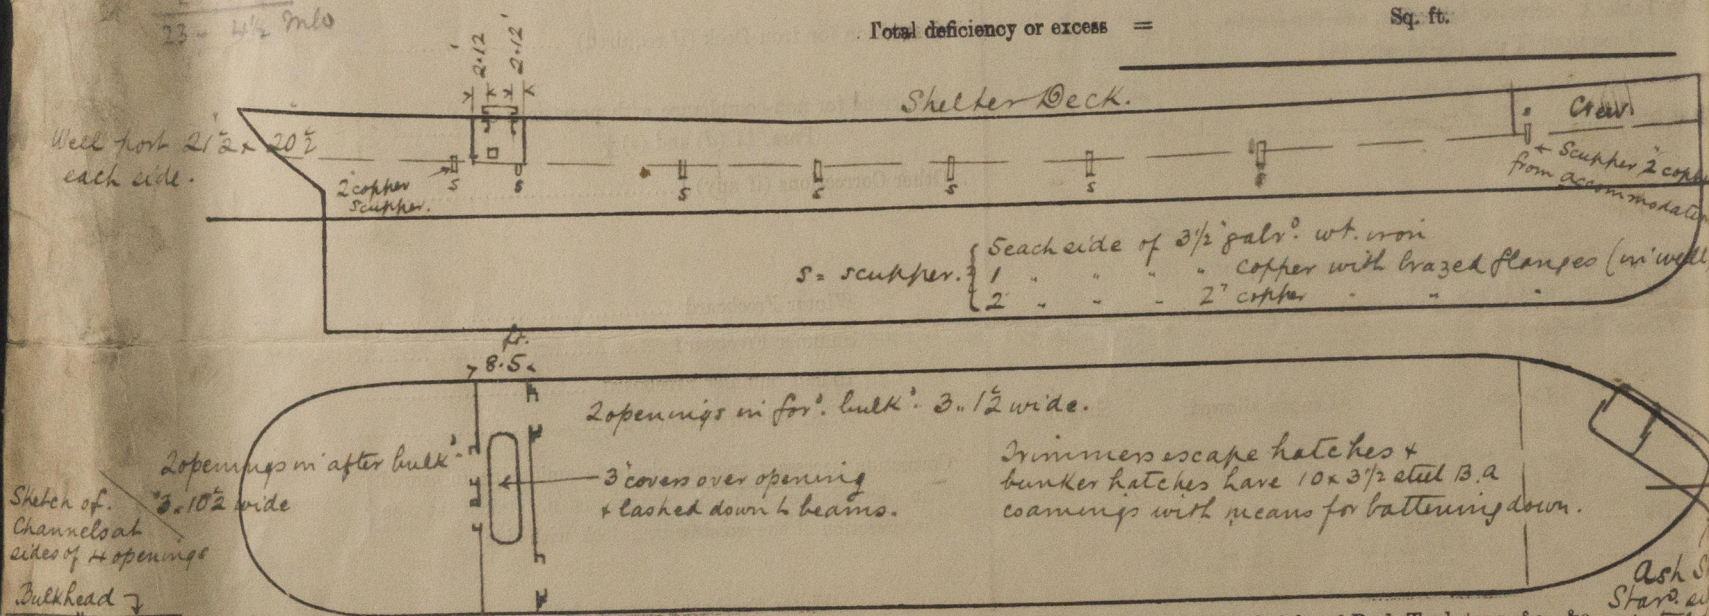 23 - 4½
Total deficiency or excess =
Sq. ft.
2.12'
2.12'
Shelter Deck.
Crew
Well port 21"½ x 20"½
each side.
2" copper
scupper.
S S S S S S S
← Scupper 2" copper
from accommodation
S = scupper.
5 each side of 3½" galvd. wt. iron
1 " " " " copper with brazed flanges (in well
2 " " " 2" copper " " "
ft.
8.5
2 openings in ford. bulkd. 3.. 1½ wide.
2 openings in after bulkd.
3.. 10½ wide
3" covers over opening
& lashed down to beams.
Trimmers escape hatches &
bunker hatches have 10 x 3½ steel B.A
coamings with means for battening down.
Sketch of
Channels at
sides of 4 openings
Bulkhead
Ash S
Stard. si